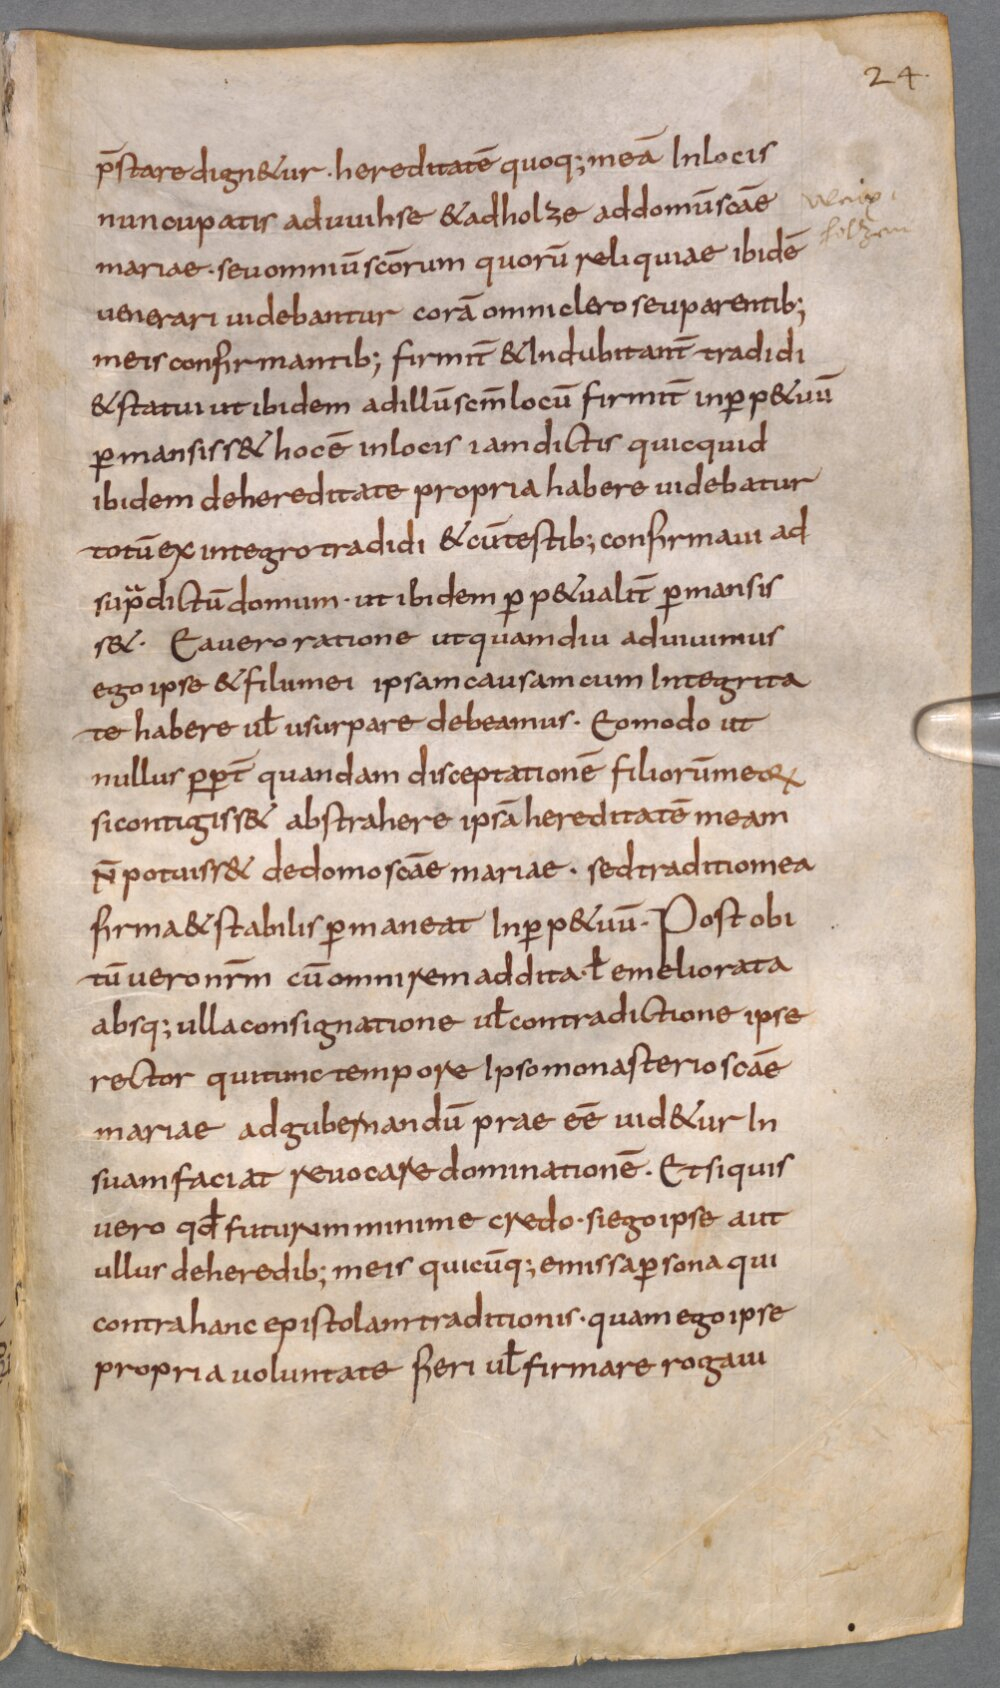 24.
p̄stare dign&ur · hereditatē quoq; meā In locis
nuncupatis ad uuihse & ad holze ad domū scāe
mariae · seu omniū scōrum quorū reliquiae ibidē
uenerari uidebantur corā omni clero seu parentib;
meis confirmantib; firmit̄ & Indubitant̄ tradidi
& statui ut ibidem ad illū scm̄ locū firmit̄ in ꝑp&uū
ꝑmansiss& hoc ē in locis iam dictis quicquid
ibidem de hereditate propria habere uidebatur
totū ex integro tradidi & cū testib; confirmaui ad
supradictū domum · ut ibidem ꝑp&ualit̄ ꝑmansis
s& · Ea uero ratione ut quamdiu aduiuimus
ego ipse & filii mei ipsam causam cum Integrita
te habere ul̄ usurpare debeamus · Eo modo ut
nullus ꝑpt̄ quandam disceptationē filiorū meoꝝ
si contigiss& abstrahere ipsā hereditatē meam
n̄ potuiss& de domo scāe mariae · sed traditio mea
firma & stabilis ꝑmaneat In ꝑp&uū · Post obi
tū uero nr̄m cū omni rem addita · l̄ emeliorata
absq; ulla consignatione ul̄ contradictione ipse
rector qui tunc tempore Ipso monasterio scāe
mariae ad gubernandū prae eē uid&ur In
suam faciat reuocare dominationē · Et si quis
uero qd̄ futurum minime credo · si ego ipse aut
ullus de heredib; meis quicūq; emissa ꝑsona qui
contra hanc epistolam traditionis · quam ego ipse
propria uoluntate fieri ul̄ firmare rogaui